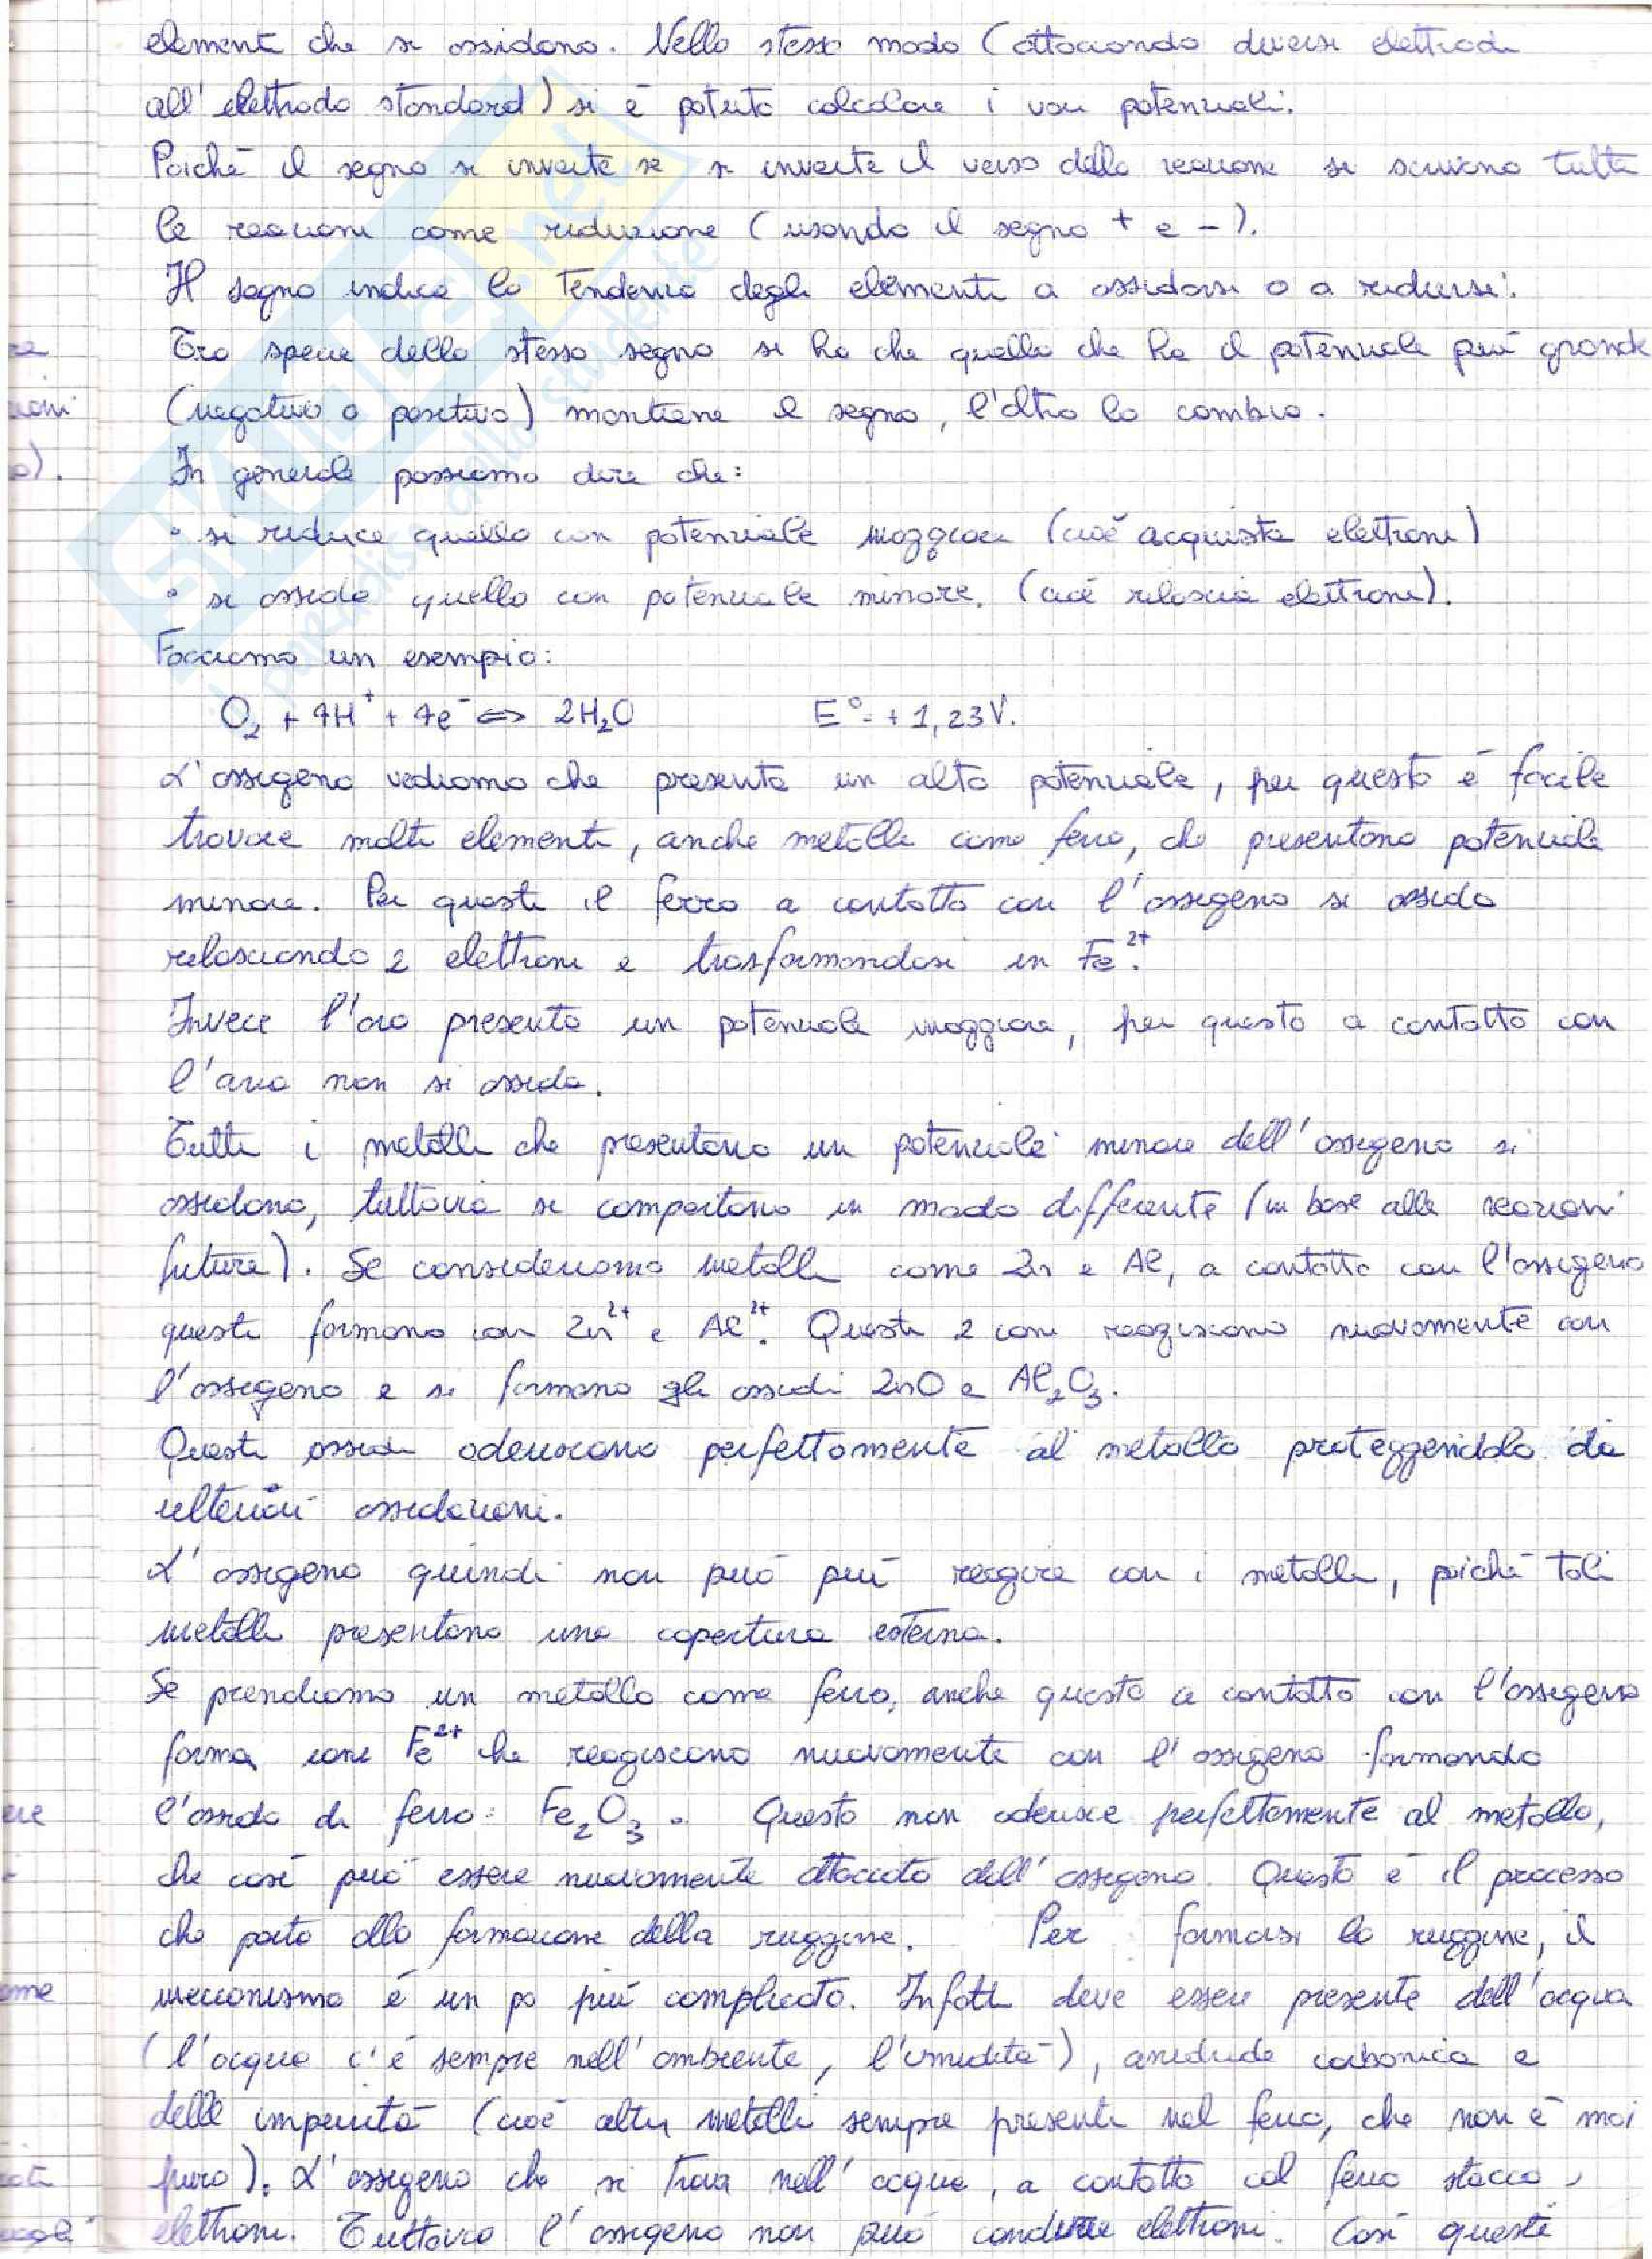 elementi che si ossidano. Nello stesso modo (attaccando diversi elettrodi
all'elettrodo standard) si è potuto calcolare i vari potenziali.
Poiché il segno si inverte se si inverte il verso della reazione si scrivono tutte
le reazioni come riduzione (usando il segno + e -).
Il segno indica la tendenza degli elementi a ossidarsi o a ridursi.
Tra specie dello stesso segno si ha che quello che ha il potenziale più grande
(negativo o positivo) mantiene il segno, l'altro lo cambia.
In generale possiamo dire che:
• si riduce quello con potenziale maggiore (cioè acquista elettroni)
• si ossida quello con potenziale minore. (cioè rilascia elettroni).
Facciamo un esempio:
O₂ + 4H⁺ + 4e⁻ ⇔ 2H₂O E° = + 1,23V.
L'ossigeno vediamo che presenta un alto potenziale, per questo è facile
trovare molti elementi, anche metalli come ferro, che presentano potenziale
minore. Per questo il ferro a contatto con l'ossigeno si ossida
rilasciando 2 elettroni e trasformandosi in Fe²⁺.
Invece l'oro presenta un potenziale maggiore, per questo a contatto con
l'aria non si ossida.
Tutti i metalli che presentano un potenziale minore dell'ossigeno si
ossidano, tuttavia si comportano in modo differente (in base alle reazioni
future). Se consideriamo metalli come Zn e Al, a contatto con l'ossigeno
questi formano ioni Zn²⁺ e Al²⁺. Questi 2 ioni reagiscono nuovamente con
l'ossigeno e si formano gli ossidi ZnO e Al₂O₃.
Questi ossidi aderiscono perfettamente al metallo proteggendolo da
ulteriori ossidazioni.
L'ossigeno quindi non può più reagire con i metalli, poiché tali
metalli presentano una copertura esterna.
Se prendiamo un metallo come ferro, anche questo a contatto con l'ossigeno
forma ioni Fe²⁺ che reagiscono nuovamente con l'ossigeno formando
l'ossido di ferro: Fe₂O₃. Questo non aderisce perfettamente al metallo,
che così può essere nuovamente attaccato dall'ossigeno. Questo è il processo
che porta alla formazione della ruggine. Per formarsi la ruggine, il
meccanismo è un po più complicato. Infatti deve essere presente dell'acqua
(l'acqua c'è sempre nell'ambiente, l'umidità), anidride carbonica e
delle impurità (cioè altri metalli sempre presenti nel ferro, che non è mai
puro). L'ossigeno che si trova nell'acqua, a contatto col ferro stacca
elettroni. Tuttavia l'ossigeno non può condurre elettroni. Così questi